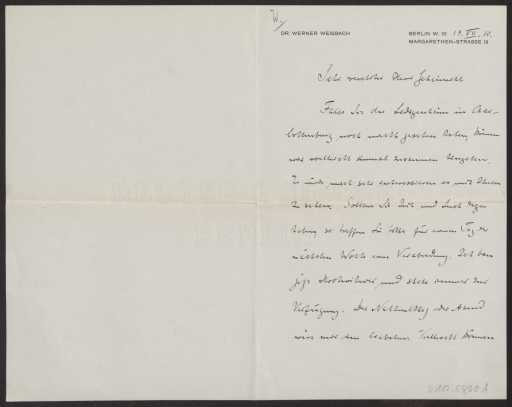 W.
DR. WERNER WEISBACH
BERLIN W. 10 19. VII. 10.
MARGARETHEN-STRASSE 19
Sehr verehrter Herr Geheimrath
Falls Sie das Ledigenheim in Char-
lottenburg noch nicht gesehen haben, können
wir vielleicht einmal zusammen hingehen.
Es würde mich sehr interessieren es mit Ihnen
zu sehen. Sollten Sie Zeit und Lust dazu
haben, so treffen Sie bitte für einen Tag der
nächsten Woche eine Verabredung. Ich bin
jetzt Strohwitwer und stehe immer zur
Verfügung. Der Nachmittag oder Abend
wäre mir am liebsten. Vielleicht können